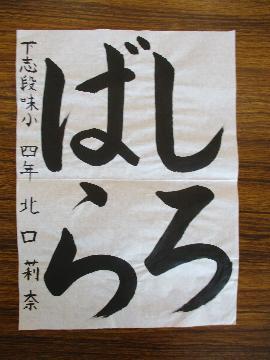 しろ
ばら
下志段味小 四年 北口莉奈